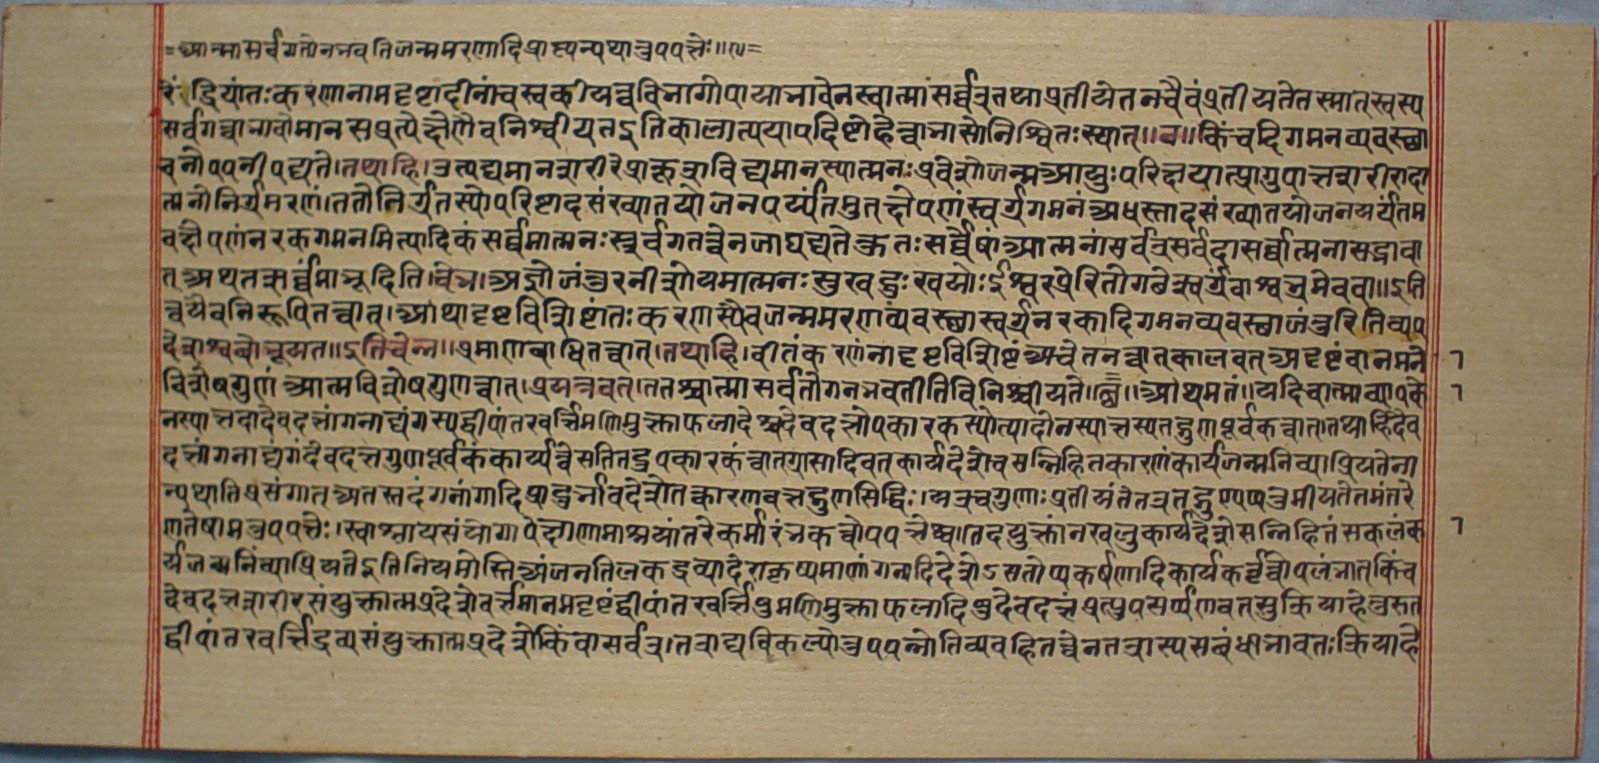 =आत्मा सर्वगतो न भवति जन्ममरणादिप्राप्त्यन्यथानुपपत्तेः॥=
रेंद्रियांतःकरणानामदृष्टादीनां च स्वकीयत्वविभागोपायाभावेन स्वात्मा सर्वत्र तथा प्रतीयेत न चैवं प्रतीयते तस्मात् स्वस्य
सर्वगत्वाभावो मानसप्रत्यक्षेणैव निश्चीयत इति कालात्ययापदिष्टो हेत्वाभासो निश्चितः स्यात्॥ किं च दिगमनव्यवस्था
च नोपपनीपद्यते। तथाहि। उत्पद्यमानशरीरे प्राक् तत्राविद्यमानस्यात्मनः प्रवेशो जन्म आयुःपरिक्षयात् प्रागुपात्तशरीरादा
त्मनो निर्गमरणं। ततो निर्गतस्योपरिष्टादसंख्यातयोजनपर्य्यंतमुत्क्षेपणं स्वर्गगमनं अधस्तादसंख्यातयोजनपर्यंतम
वक्षेपणं नरकगमनमित्यादिकं सर्व्वमात्मनः सर्वगतत्वेन जाघट्यते कुतः सर्व्वेषां आत्मनां सर्वत्र सर्वदा सर्वात्मना सद्भावा
त् अथ तत् सर्व्वं मा भूदिति। चेन्न। अज्ञो जंतुरनीशोयमात्मनः सुखदुःखयोः ईश्वरप्रेरितो गच्छेत् स्वर्गं वा श्वभ्रमेव वा॥ इति
त्वयैव निरूपितत्वात्। अथादृष्टविशिष्टांतःकरणस्यैव जन्ममरणव्यवस्था स्वर्गनरकादिगमनव्यवस्था जंतुरिति व्यप
देशश्च बोभूयत॥ इति चेन्न॥ प्रमाणबाधितत्वात्। तथाहि। वीतं करणं नादृष्टविशिष्टं अचेतनत्वात् कालवत् अदृष्टं वा न मनो
विशेषगुणं आत्मविशेषगुणत्वात्। प्रयत्नवत्। ततश्चात्मा सर्वगतो न भवतीति विनिश्चीयते॥ अथ मतं॥ यदि चात्मा व्यापको
न स्यात्तदा देवदत्तांगनाद्यंगस्य द्वीपांतरवर्त्तिमणिमुक्ताफलादेश्च देवदत्तोपकारकस्योत्पादो न स्यात्तस्य तद्गुणपूर्वकत्वात्। तथाहि देव
दत्तांगनाद्यंगं देवदत्तगुणपूर्वकं कार्य्यत्वे सति तदुपकारकत्वात् ग्रासादिवत् कार्यदेशे च सन्निहितं कारणं कार्यजन्मनि व्याप्रियते ना
न्यथातिप्रसंगात् अतस्तदंगनांगादिप्रादुर्भावदेशे तत्कारणवत्तद्गुणसिद्धिः। यत्र च गुणाः प्रतीयंते तत्र तद्गुण्यप्यनुमीयते तमंतरे
ण तेषामनुपपत्तेः। स्वाश्रयसंयोगापेक्षाणामाश्रयांतरे कर्मारंभकत्वोपपत्तेश्च। तदप्ययुक्तं। न खलु कार्यदेशे सन्निहितं सकलं का
र्यजन्मनि व्याप्रियते इति नियमोस्ति अंजनतिलकद्रव्यादेराकृष्यमाणांगनादिदेशेऽसतोप्याकर्षणादिकार्यकर्तृत्वोपलंभात् किं च
देवदत्तशरीरसंयुक्तात्मप्रदेशे वर्त्तमानमदृष्टं द्वीपांतरवर्त्तिषु मणिमुक्ताफलादिषु देवदत्तं प्रत्युपसर्प्पणवत्सु क्रियाहेतुरुत
द्वीपांतरवर्त्तिद्रव्यसंयुक्तात्मप्रदेशे किं वा सर्वत्र। तत्राद्यविकल्पोनुपपन्नोतिव्यवहितत्वेन तत्रास्य संबंधाभावतः क्रियाहे